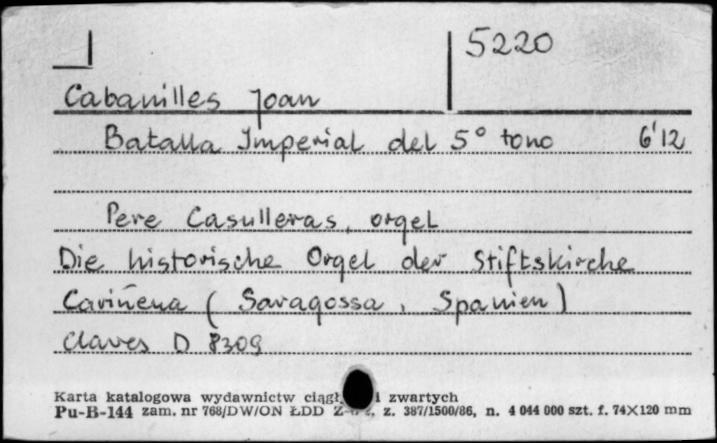 5220
Cabanilles Joan
Batalla Imperial del 5° tono 6'12
Pere Casulleras, orgel
Die historische Orgel der Stiftskirche
Cariñena (Saragossa, Spanien)
Claves D 8309
Karta katalogowa wydawnictw ciągł. i zwartych
Pu-B-144 zam. nr 768/DW/ON ŁDD z. 387/1500/86, n. 4 044 000 szt. f. 74×120 mm